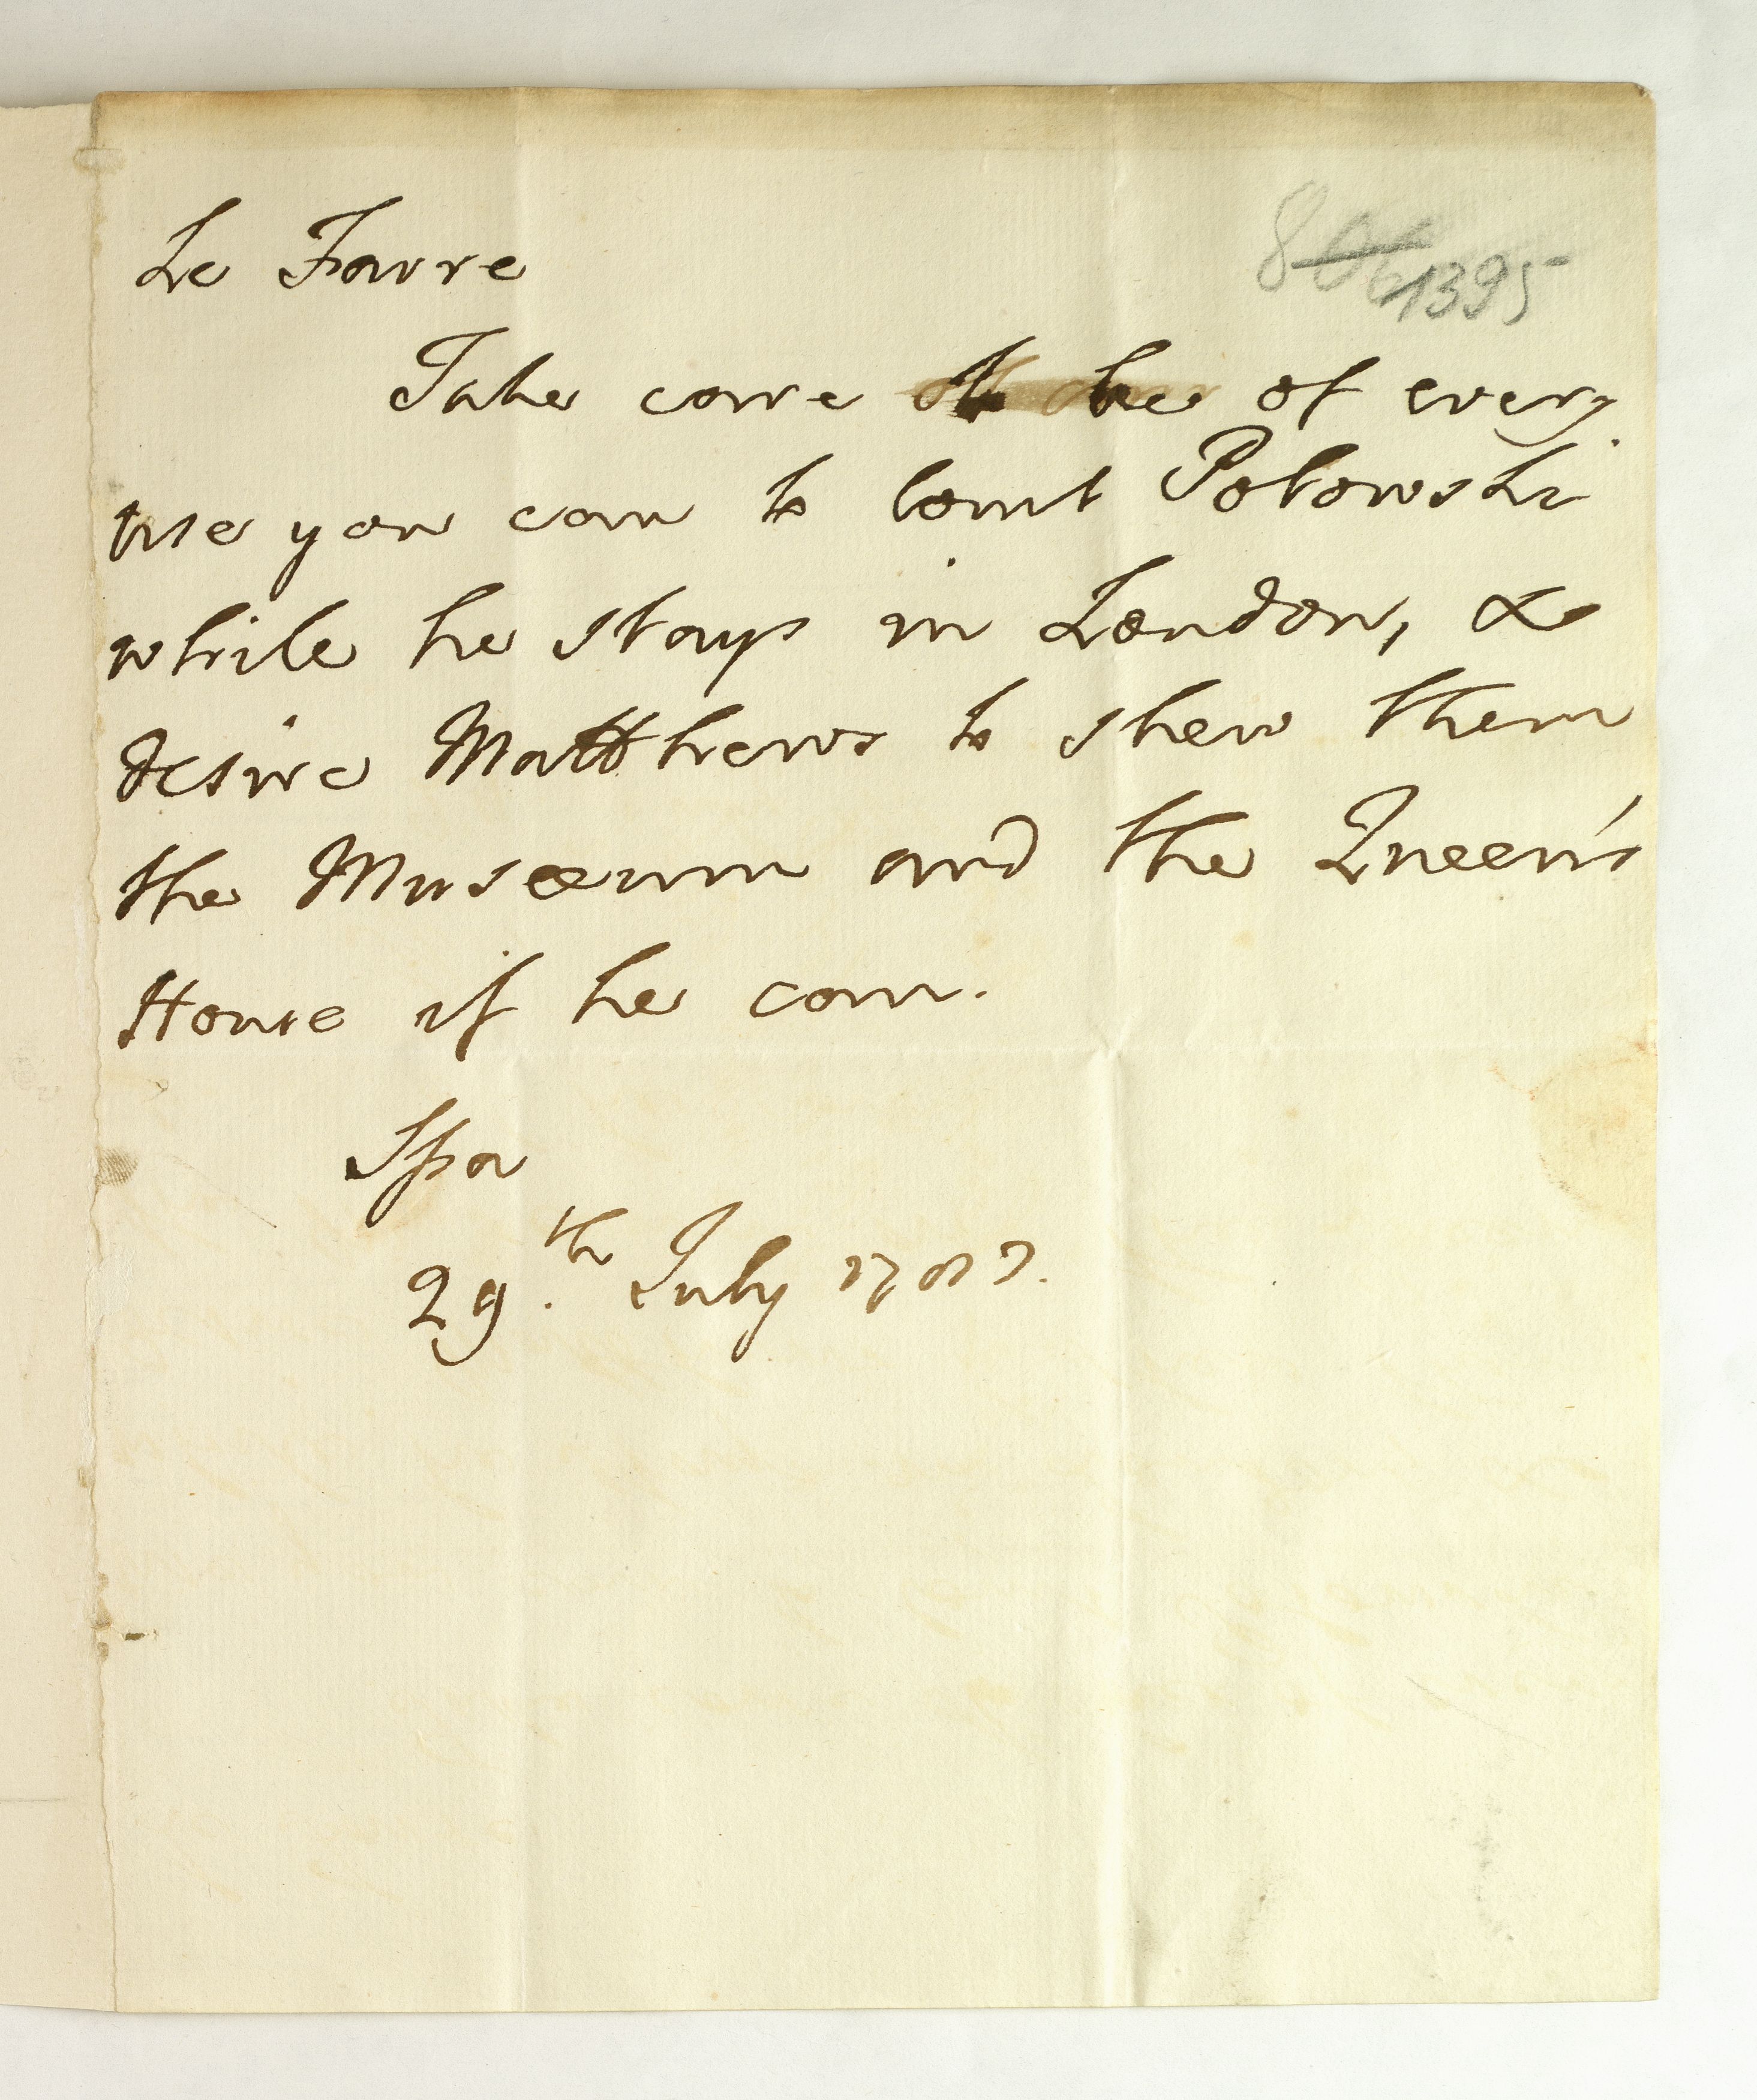 Le Favre
1395
Take care to be of every
use you can to Count Potowski
while he stays in London, &
desire Matthews to shew them
the Musæum and the Queen's
House if he can.
Spa
29.th July 1787.